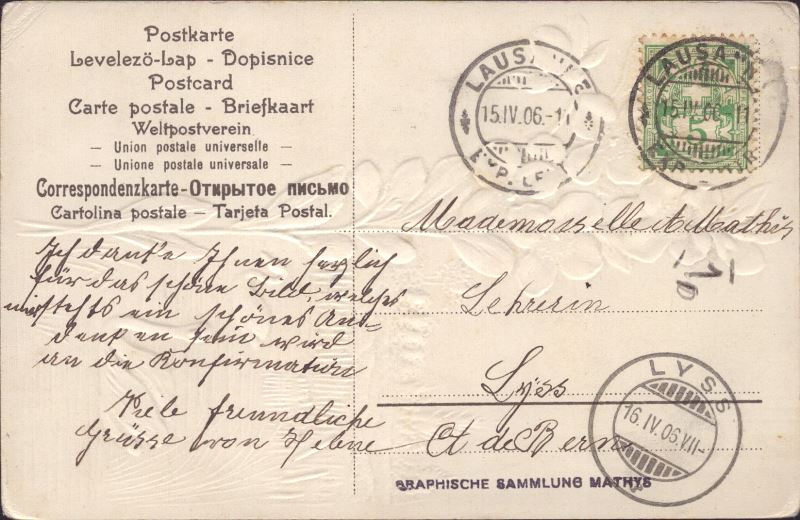 Postkarte
Levelezö-Lap - Dopisnice
Postcard
Carte postale - Briefkaart
Weltpostverein
- Union postale universelle -
- Unione postale universale -
Correspondenzkarte-Открытое письмо
Cartolina postale - Tarjeta Postal.
Ich danke Ihnen herzlich
für das schöne Bild, welches
mir stehts ein schönes An-
denken sein wird
an die Konfirmation
Viele freundliche
Grüsse von Helene
LAUSANNE
15.IV.06.-11
EXP. LETT.
LAUSANNE
15.IV.06.-11
EXP. LETTR.
5
Mademoiselle A. Mathys
Lehrerin
Lyss
Ct de Bern
1
LYSS
16.IV.06.VII-
GRAPHISCHE SAMMLUNG MATHYS